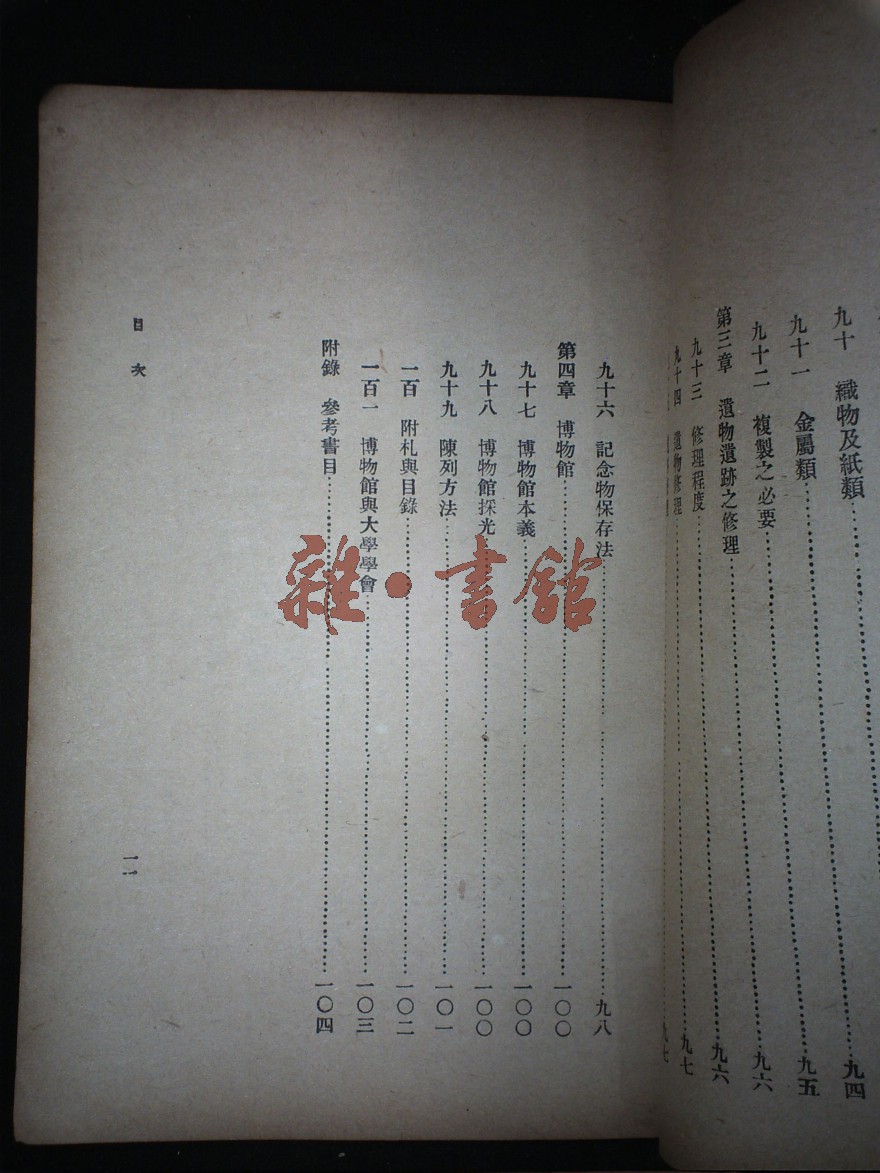 九十 織物及紙類……九四
九十一 金屬類……九五
九十二 複製之必要……九六
第三章 遺物遺跡之修理……九六
九十三 修理程度……九七
九十四 遺物修理……九七
九十六 記念物保存法……九八
第四章 博物館……一〇〇
九十七 博物館本義……一〇〇
九十八 博物館採光……一〇〇
九十九 陳列方法……一〇一
一百 附札與目錄……一〇二
一百一 博物館與大學學會……一〇三
附錄 參考書目……一〇四
目次
雜·書館